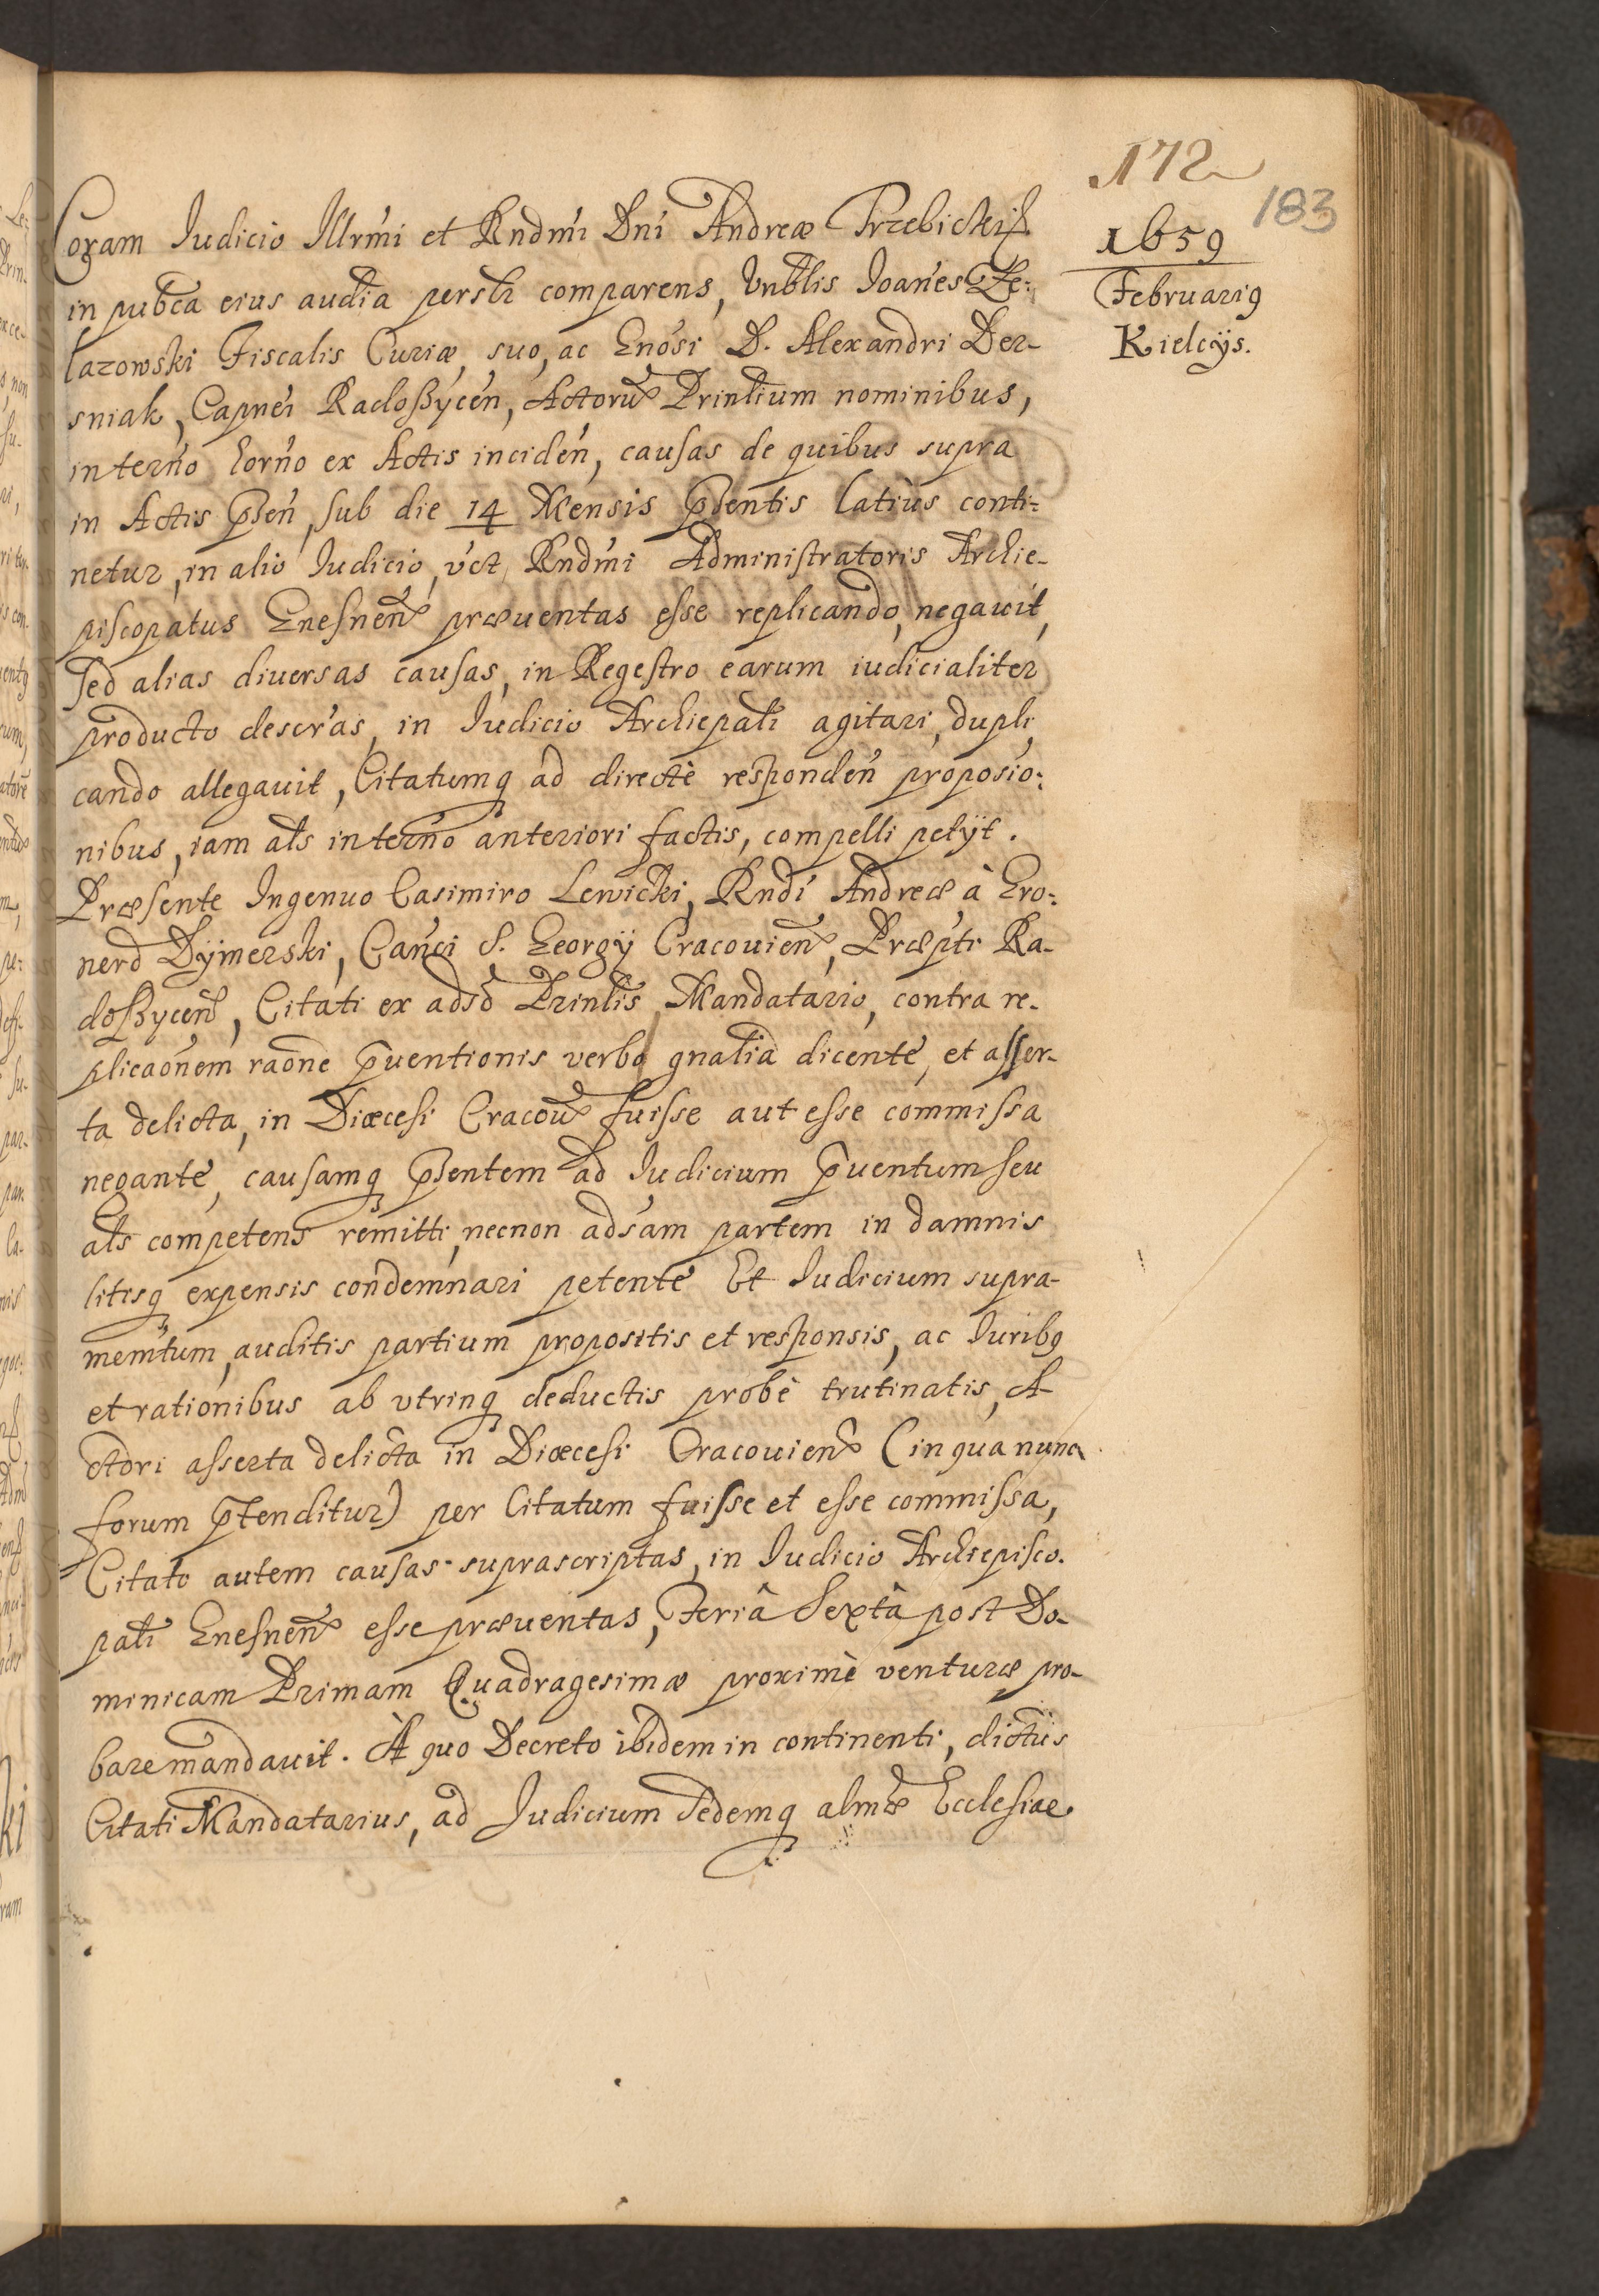 172
183
1659
Februarij
Kielcÿs.
Coram Iudicio Illrmi et Rndmi Dni Andreæ Trzebicki
in pubca eius audia persltr comparens, Vnblis Joanes Ze:
lazowski Fiscalis Curiæ, suo, ac Gnosi D. Alexandri Der-
sniak, Capnei Radoßÿcen, Actorum Prinlium nominibus,
in terno horno ex Actis inciden, causas de quibus supra
in Actis psen, sub die 14 Mensis psentis latiùs conti:
netur, in alio Iudicio, vct, Rndmi Administratoris Archie-
piscopatus Gnesnen præuentas esse replicando, negauit,
sed alias diuersas causas, in Regestro earum iudicialiter
producto descras, in Iudicio Archiepali agitari, dupli
cando allegauit, Citatumq ad directè responden proposio:
nibus, iam als in terno anteriori factis, compelli petÿt.
Præsente Ingenuo Casimiro Lewicki, Rndi Andreæ à Gro:
nerd Dÿmerski, Canci S. Georgÿ Cracouien, Præpti Ra-
doßycen, Citati ex adso Prinlis Mandatario, contra re-
plicaonem raone puentionis verbo gnalia dicente, et asser-
ta delicta, in Diœcesi Cracou fuisse aut esse commissa
negante, causamq psentem ad Iudicium puentum seu
als competens remitti, necnon adsam partem in damnis
litisq expensis condemnari petente Et Iudicium supra-
memtum, auditis partium propositis et responsis, ac Iuribq
et rationibus ab vtrinq deductis probè trutinatis, A-
ctori asserta delicta in Diœcesi Cracouien (in qua nunc
forum ptenditur) per Citatum fuisse et esse commissa,
Citato autem causas suprascriptas, in Iudicio Archiepisco-
pali Gnesnen esse præuentas, Feriâ Sextâ post Do-
minicam Primam Quadragesimæ proximè venturæ pro-
bare mandauit. À quo Decreto ibidem in continenti, dictus
Citati Mandatarius, ad Iudicium Sedemq almæ Ecclesiae